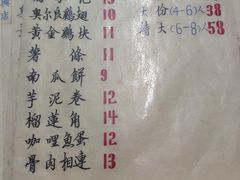 奥尔良鷄翅 10
黄金鷄块 11
薯條 11
南瓜餅 9
芋泥卷 12
榴莲角 14
咖哩魚蛋 12
骨肉相連 13
大份(4-6)人38
特大(6-8)人58